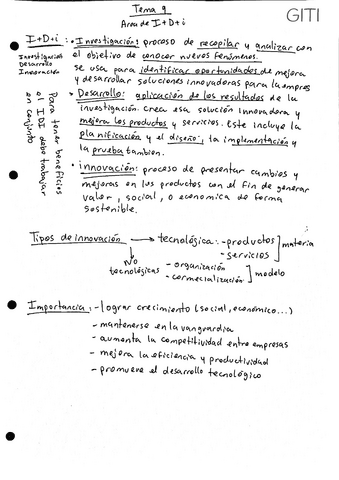 Tema 9
Area de I+D+i
GITI
I+D+i
Investigación
Desarrollo
Innovación
Para tener beneficios
el IDI debe trabajar
en conjunto
• Investigación: proceso de recopilar y analizar con
el objetivo de conocer nuevos fenómenos.
se usa para identificar oportunidades de mejora
y desarrollar soluciones innovadoras para la empres
• Desarrollo: aplicación de los resultados de la
investigación. Crea esa solución innovadora y
mejora los productos y servicios. Este incluye la
planificación y el diseño, la implementación y
la prueba tambien.
• innovación: proceso de presentar cambios y
mejoras en los productos con el fin de generar
valor, social, o economica de forma
sostenible.
Tipos de innovación → tecnológica: - productos ] materia
- servicios
NO
tecnológicas - organización ] modelo
- comercialización
Importancia: - lograr crecimiento (social, economico...)
- mantenerse en la vanguardia
- aumenta la competitividad entre empresas
- mejora la eficiencia y productividad
- promueve el desarrollo tecnológico